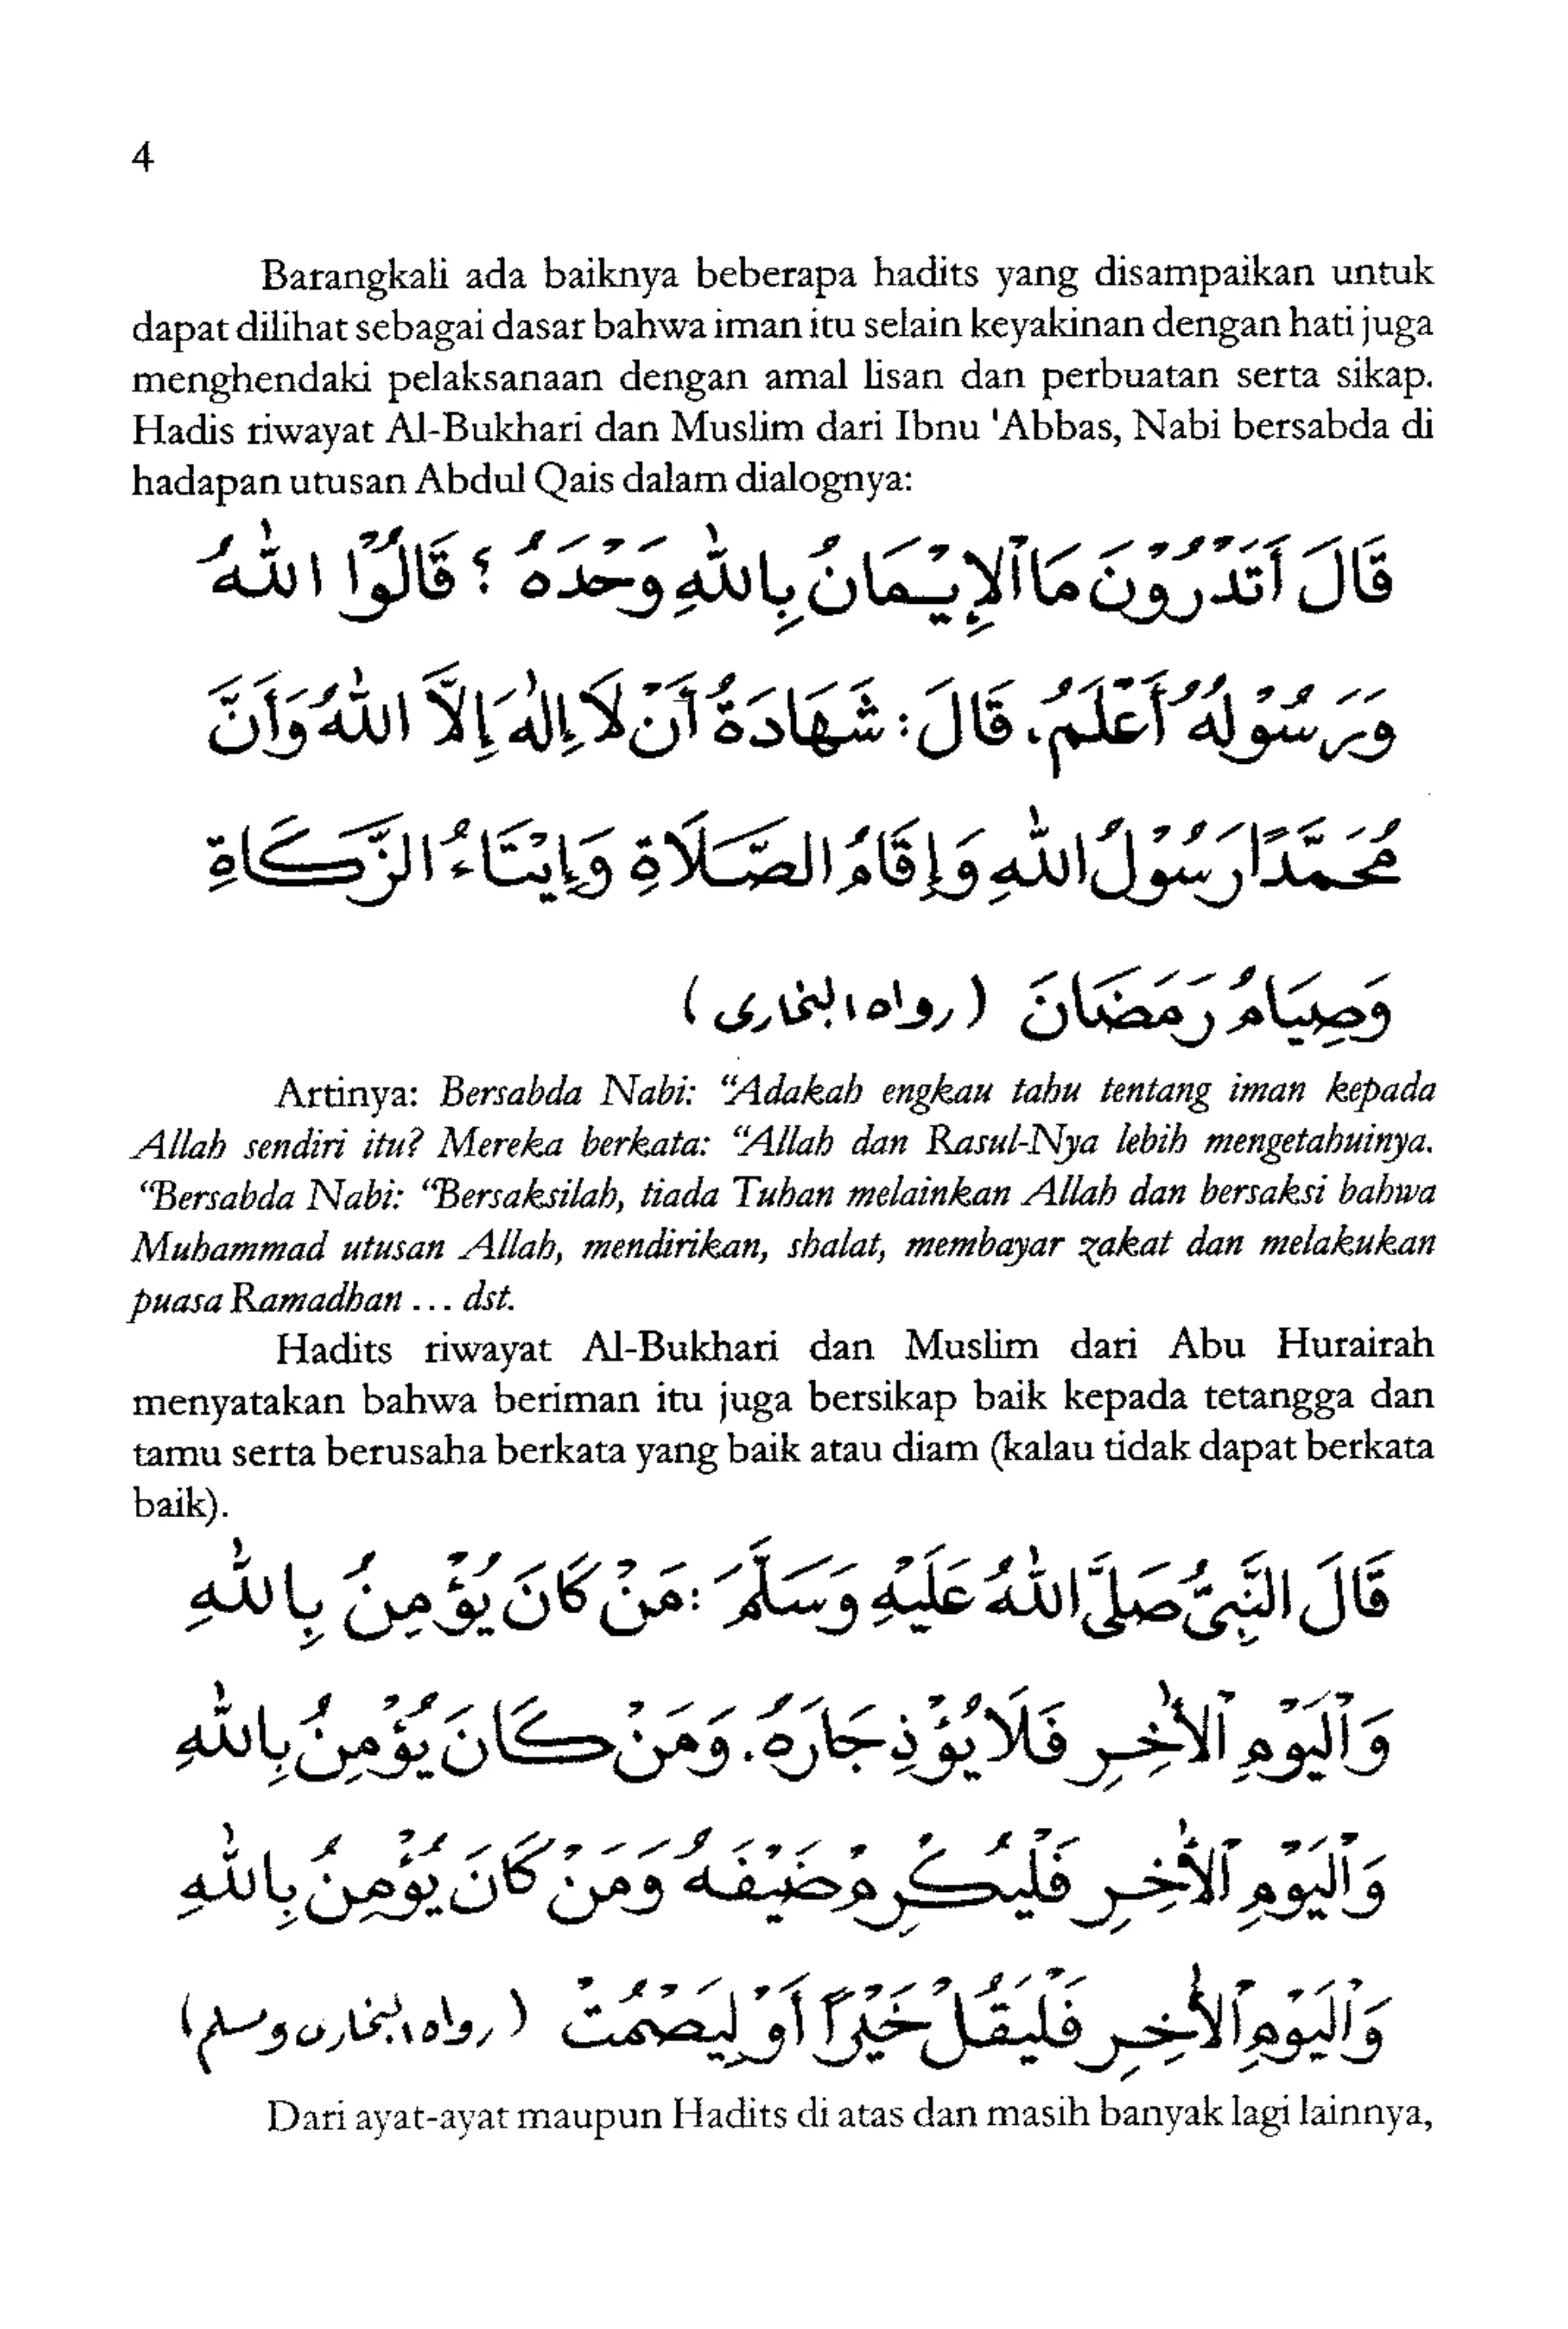 4
Barangkali ada baiknya beberapa hadits yang disampaikan untuk
dapat dilihat sebagai dasar bahwa iman itu selain keyakinan dengan hati juga
menghendaki pelaksanaan dengan amal lisan dan perbuatan serta sikap.
Hadis riwayat Al-Bukhari dan Muslim dari Ibnu 'Abbas, Nabi bersabda di
hadapan utusan Abdul Qais dalam dialognya:
قَالَ أَتَدْرُوْنَ مَا ٱلْإِيْمَانُ بِاللّٰهِ وَحْدَهُ ؟ قَالُوْا اللّٰهُ
وَرَسُوْلُهُ أَعْلَمُ. قَالَ : شَهَادَةُ أَنْ لَا إِلٰهَ إِلَّا اللّٰهُ وَأَنَّ
مُحَمَّدًا رَسُوْلُ اللّٰهِ وَإِقَامُ الصَّلَاةِ وَإِيْتَاءُ الزَّكَاةِ
وَصِيَامُ رَمَضَانَ ( رواه البخارى )
Artinya: Bersabda Nabi: “Adakah engkau tahu tentang iman kepada
Allah sendiri itu? Mereka berkata: “Allah dan Rasul-Nya lebih mengetahuinya.
“Bersabda Nabi: “Bersaksilah, tiada Tuhan melainkan Allah dan bersaksi bahwa
Muhammad utusan Allah, mendirikan, shalat, membayar zakat dan melakukan
puasa Ramadhan ... dst.
Hadits riwayat Al-Bukhari dan Muslim dari Abu Hurairah
menyatakan bahwa beriman itu juga bersikap baik kepada tetangga dan
tamu serta berusaha berkata yang baik atau diam (kalau tidak dapat berkata
baik).
قَالَ النَّبِىُّ صَلَّى اللّٰهُ عَلَيْهِ وَسَلَّمَ : مَنْ كَانَ يُؤْمِنُ بِاللّٰهِ
وَٱلْيَوْمِ ٱلْأٰخِرِ فَلَا يُؤْذِ جَارَهُ. وَمَنْ كَانَ يُؤْمِنُ بِاللّٰهِ
وَٱلْيَوْمِ ٱلْأٰخِرِ فَلْيُكْرِمْ ضَيْفَهُ وَمَنْ كَانَ يُؤْمِنُ بِاللّٰهِ
وَٱلْيَوْمِ ٱلْأٰخِرِ فَلْيَقُلْ خَيْرًا أَوْ لِيَصْمُتْ ( رواه البخارى ومسلم )
Dari ayat-ayat maupun Hadits di atas dan masih banyak lagi lainnya,